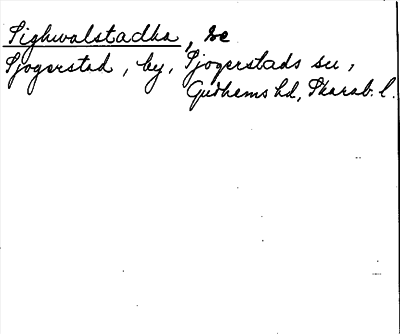 Sighwalstadha, se
Sjogerstad, by, Sjogerstads sn,
Gudhems hd, Skarab. l.